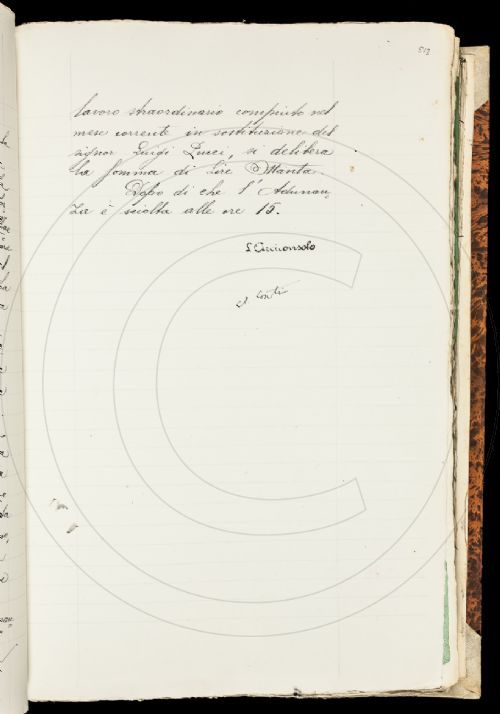 513
lavoro straordinario compiuto nel
mese corrente in sostituzione del
signor Luigi Lucci, si delibera
la somma di Lire Ottanta.
Dopo di che l'Adunan,
za è sciolta alle ore 15.
L'Arciconsolo
Conti